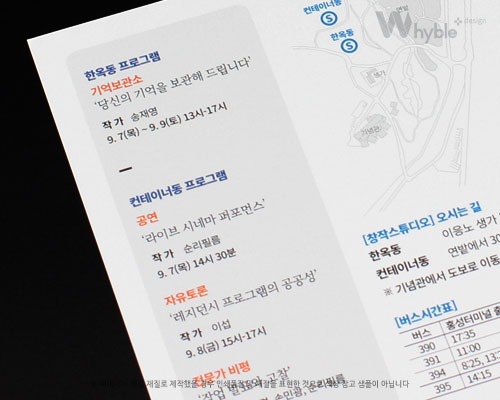 한옥동 프로그램
기억보관소
‘당신의 기억을 보관해 드립니다’
작 가 송재영
9. 7(목) ~ 9. 9(토) 13시-17시
컨테이너동 프로그램
공연
‘라이브 시네마 퍼포먼스’
작 가 순리필름
9. 7(목) 14시 30분
자유토론
‘레지던시 프로그램의 공공성’
작 가 이섭
9. 8(금) 15시-17시
전문가 비평
컨테이너동
S
한옥동
S
연밭
생가
기념관
Whyble design
[창작스튜디오] 오시는 길
한옥동 이응노 생가
컨테이너동 연밭에서 30
※ 기념관에서 도보로 이동
[버스시간표]
버스 홍성터미널 출
390 17:35
391 11:00
394 8:25, 13:
395 14:15